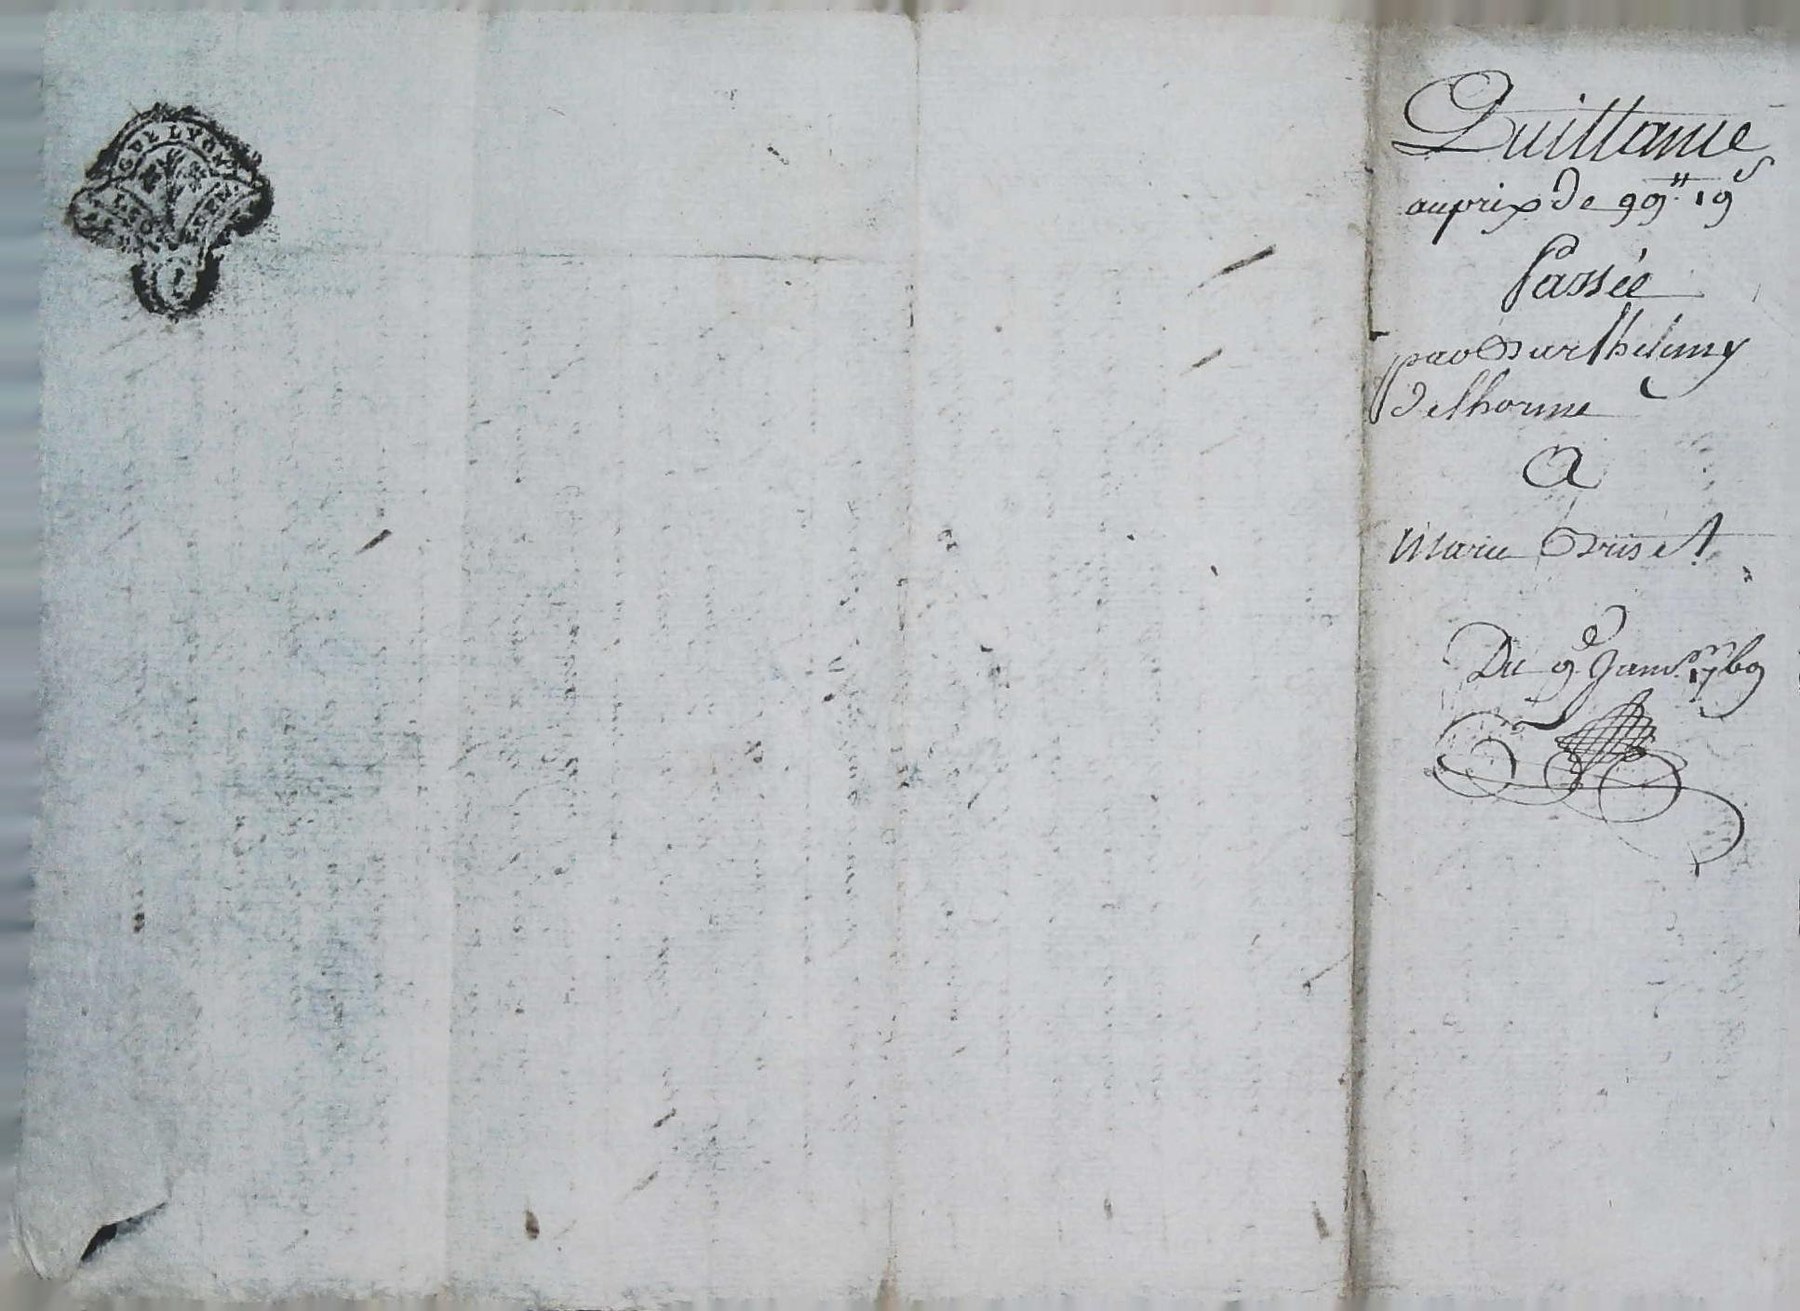 G DE LYON
Quittance
au prix de 99# 19s
Passée
par Barthelemy
delhorme
A
Marie Briset
Du 9e Janvr. 1769